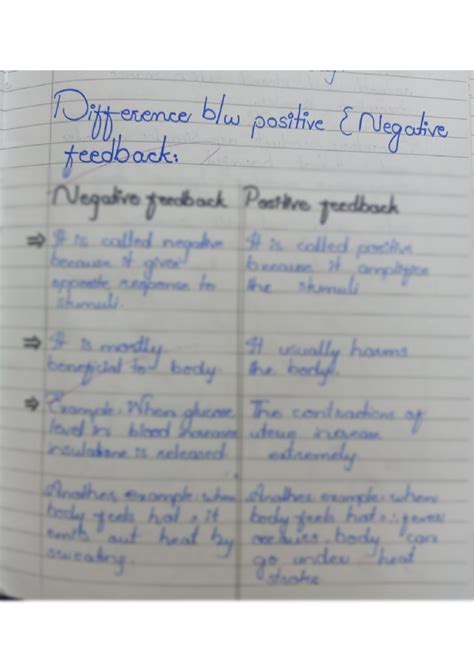 Difference b/w positive & Negative
feedback:
Negative feedback
⇒ It is called negative
because it gives
opposite response to
stimuli.
⇒ It is mostly
beneficial to body.
⇒ Example: When glucose
level in blood increases
is released
Another example: when
body feels hot, it
emits out heat by
sweating.
Positive feedback
It is called positive
because it amplifies
the stimuli
It usually harms
the body.
The contractions of
uterus increase
extremely
Another example: when
body feels hot,
body can
go under heat
stroke